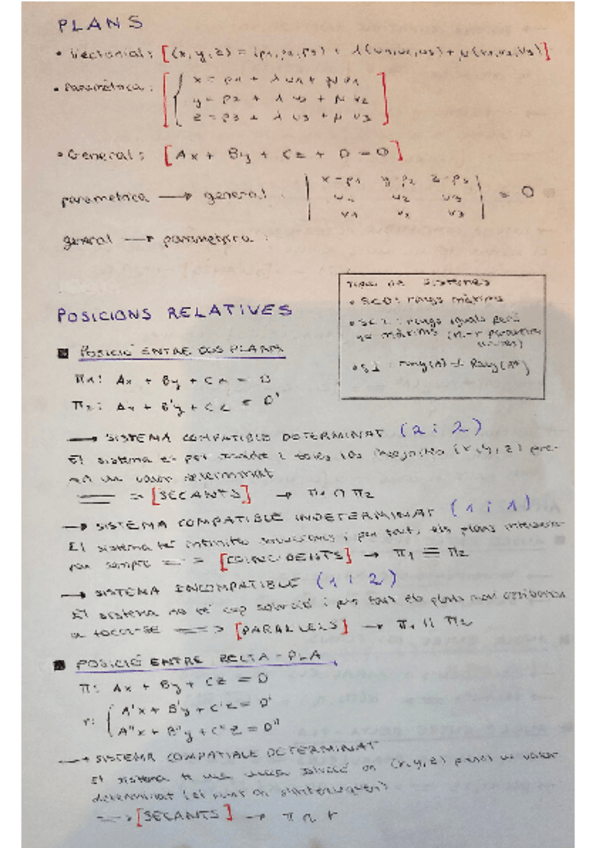 PLANS
• Vectorial: [(x,y,z) = (p1,p2,p3) + λ(u1,u2,u3) + μ(v1,v2,v3)]
• Paramètrica: [{ x = p1 + λ u1 + μ v1
y = p2 + λ u2 + μ v2
z = p3 + λ u3 + μ v3 ]
• General: [Ax + By + Cz + D = 0]
parametrica → general: | x-p1 y-p2 z-p3 |
| u1 u2 u3 | = 0
| v1 v2 v3 |
general → parametrica:
POSICIONS RELATIVES
Tipus de sistemes
• SCD: rangs màxims
• SCI: rangs iguals però
no màxims (n-r paràmetres
• SI: rang(A) ≠ Rang(A*)
POSICIÓ ENTRE DOS PLANS
π1: Ax + By + Cz = D
π2: A'x + B'y + C'z = D'
→ SISTEMA COMPATIBLE DETERMINAT (2 i 2)
El sistema es pot resoldre i totes les incògnites (x,y,z) pre-
nen un valor determinat
⇒ [SECANTS] → π1 ∩ π2
→ SISTEMA COMPATIBLE INDETERMINAT (1 i 1)
El sistema té infinites solucions i per tant, els plans
sempre ⇒ [COINCIDENTS] → π1 ≡ π2
→ SISTEMA INCOMPATIBLE (1 i 2)
El sistema no té cap solució i per tant els plans mai arribaran
a tocar-se ⇒ [PARAL·LELS] → π1 || π2
POSICIÓ ENTRE RECTA-PLA
π: Ax + By + Cz = D
r: { A'x + B'y + C'z = D'
A''x + B''y + C''z = D''
→ SISTEMA COMPATIBLE DETERMINAT
El sistema té una única solució on (x,y,z) prenen un valor
determinat (el punt on s'intersequen)
⇒ [SECANTS] → π ∩ r